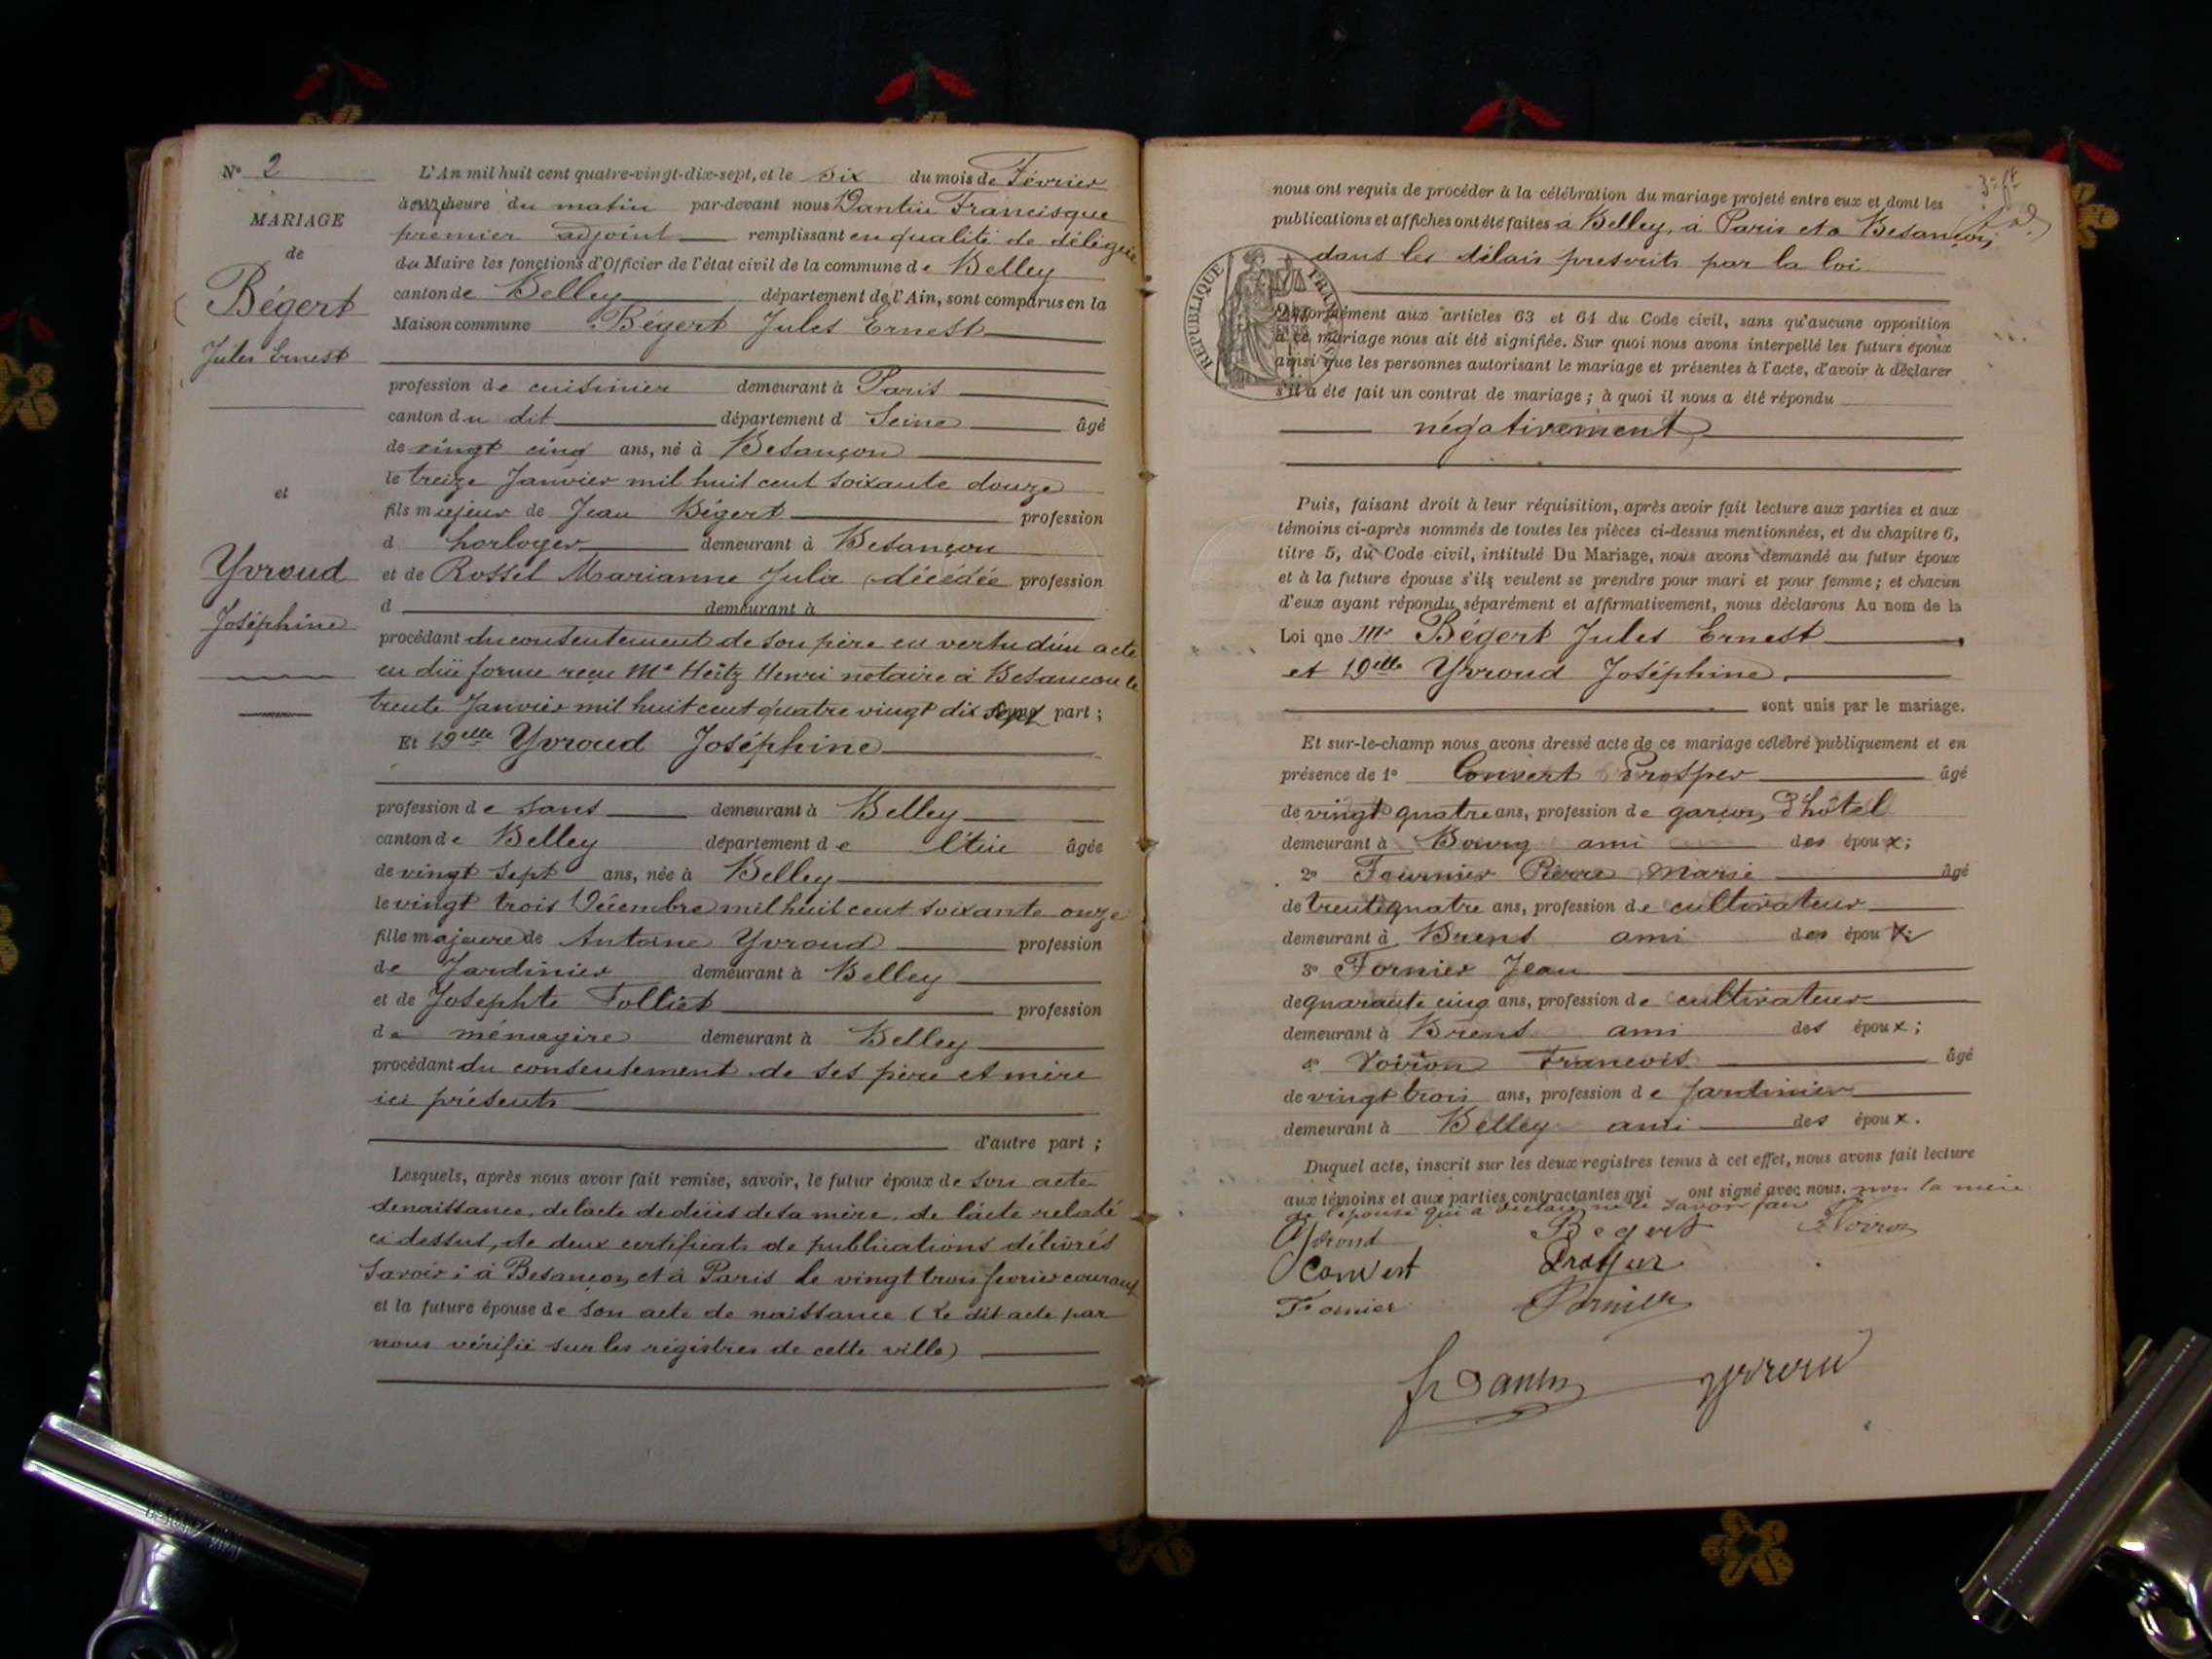 No 2
MARIAGE
de
Bégert
Jules Ernest
et
Yvroud
Joséphine
L'An mil huit cent quatre-vingt-dix-sept, et le six du mois de Février
à onze heure du matin par-devant nous Dantin Francisque
premier adjoint remplissant en qualité de délégué
du Maire les fonctions d'Officier de l'état civil de la commune de Belley
canton de Belley département de l'Ain, sont comparus en la
Maison commune Bégert Jules Ernest
profession de cuisinier demeurant à Paris
canton du dit département d Seine âgé
de vingt cinq ans, né à Besançon
le treize Janvier mil huit cent soixante douze
fils majeur de Jean Bégert profession
d horloger demeurant à Besançon
et de Rossel Marianne Jula décédée profession
d demeurant à
procédant du consentement de son père en vertu d'un acte
en düe forme reçu Me Heitz Henri notaire à Besancon le
trente Janvier mil huit cent quatre vingt dix sept part ;
Et Delle Yvroud Joséphine
profession de sans demeurant à Belley
canton de Belley département de l'Ain âgée
de vingt sept ans, née à Belley
le vingt trois Décembre mil huit cent soixante onze
fille majeure de Antoine Yvroud profession
de Jardinier demeurant à Belley
et de Josephte Folliet profession
de ménagère demeurant à Belley
procédant du consentement de ses père et mère
ici présents
d'autre part ;
Lesquels, après nous avoir fait remise, savoir, le futur époux de son acte
de naissance, de l'acte de décès de sa mère, de l'acte relaté
ci dessus, de deux certificats de publications délivrés
Savoir : à Besançon et à Paris le vingt trois fevrier courant
et la future épouse de son acte de naissance (Le dit acte par
nous vérifié sur les régistres de cette ville)
nous ont requis de procéder à la célébration du mariage projeté entre eux et dont les
publications et affiches ont été faites à Belley, à Paris et a Besançon,
dans les délais prescrits par la loi
RÉPUBLIQUE FRANÇAISE
Conformément aux articles 63 et 64 du Code civil, sans qu'aucune opposition
à ce mariage nous ait été signifiée. Sur quoi nous avons interpellé les futurs époux
ainsi que les personnes autorisant le mariage et présentes à l'acte, d'avoir à déclarer
s'il a été fait un contrat de mariage ; à quoi il nous a été répondu
négativement
Puis, faisant droit à leur réquisition, après avoir fait lecture aux parties et aux
témoins ci-après nommés de toutes les pièces ci-dessus mentionnées, et du chapitre 6,
titre 5, du Code civil, intitulé Du Mariage, nous avons demandé au futur époux
et à la future épouse s'ils veulent se prendre pour mari et pour femme ; et chacun
d'eux ayant répondu séparément et affirmativement, nous déclarons Au nom de la
Loi que Mr Bégert Jules Ernest
et Delle Yvroud Joséphine,
sont unis par le mariage.
Et sur-le-champ nous avons dressé acte de ce mariage célébré publiquement et en
présence de 1º Convert Prosper âgé
de vingt quatre ans, profession de garçon d'hôtel
demeurant à Bourg ami des époux ;
2º Fournier Pierre Marie âgé
de trente quatre ans, profession de cultivateur
demeurant à Brens ami des époux
3º Fornier Jean
de quarante cinq ans, profession de cultivateur
demeurant à Brens ami des époux ;
4º Voiron Francois âgé
de vingt trois ans, profession de Jardinier
demeurant à Belley ami des époux.
Duquel acte, inscrit sur les deux registres tenus à cet effet, nous avons fait lecture
aux témoins et aux parties contractantes qui ont signé avec nous. non la mère
de l'épouse qui a déclaré ne le savoir faire
Yvroud Begert Voiron
Convert Prosper
Fornier Fornier
fr Dantin yvroud